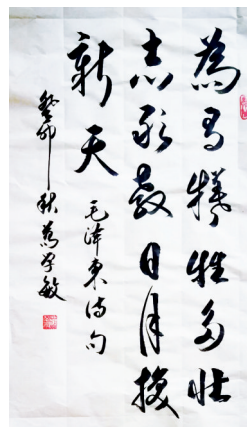 為有犧牲多壯
志敢教日月換
新天
毛澤東詩句
癸卯秋學敏